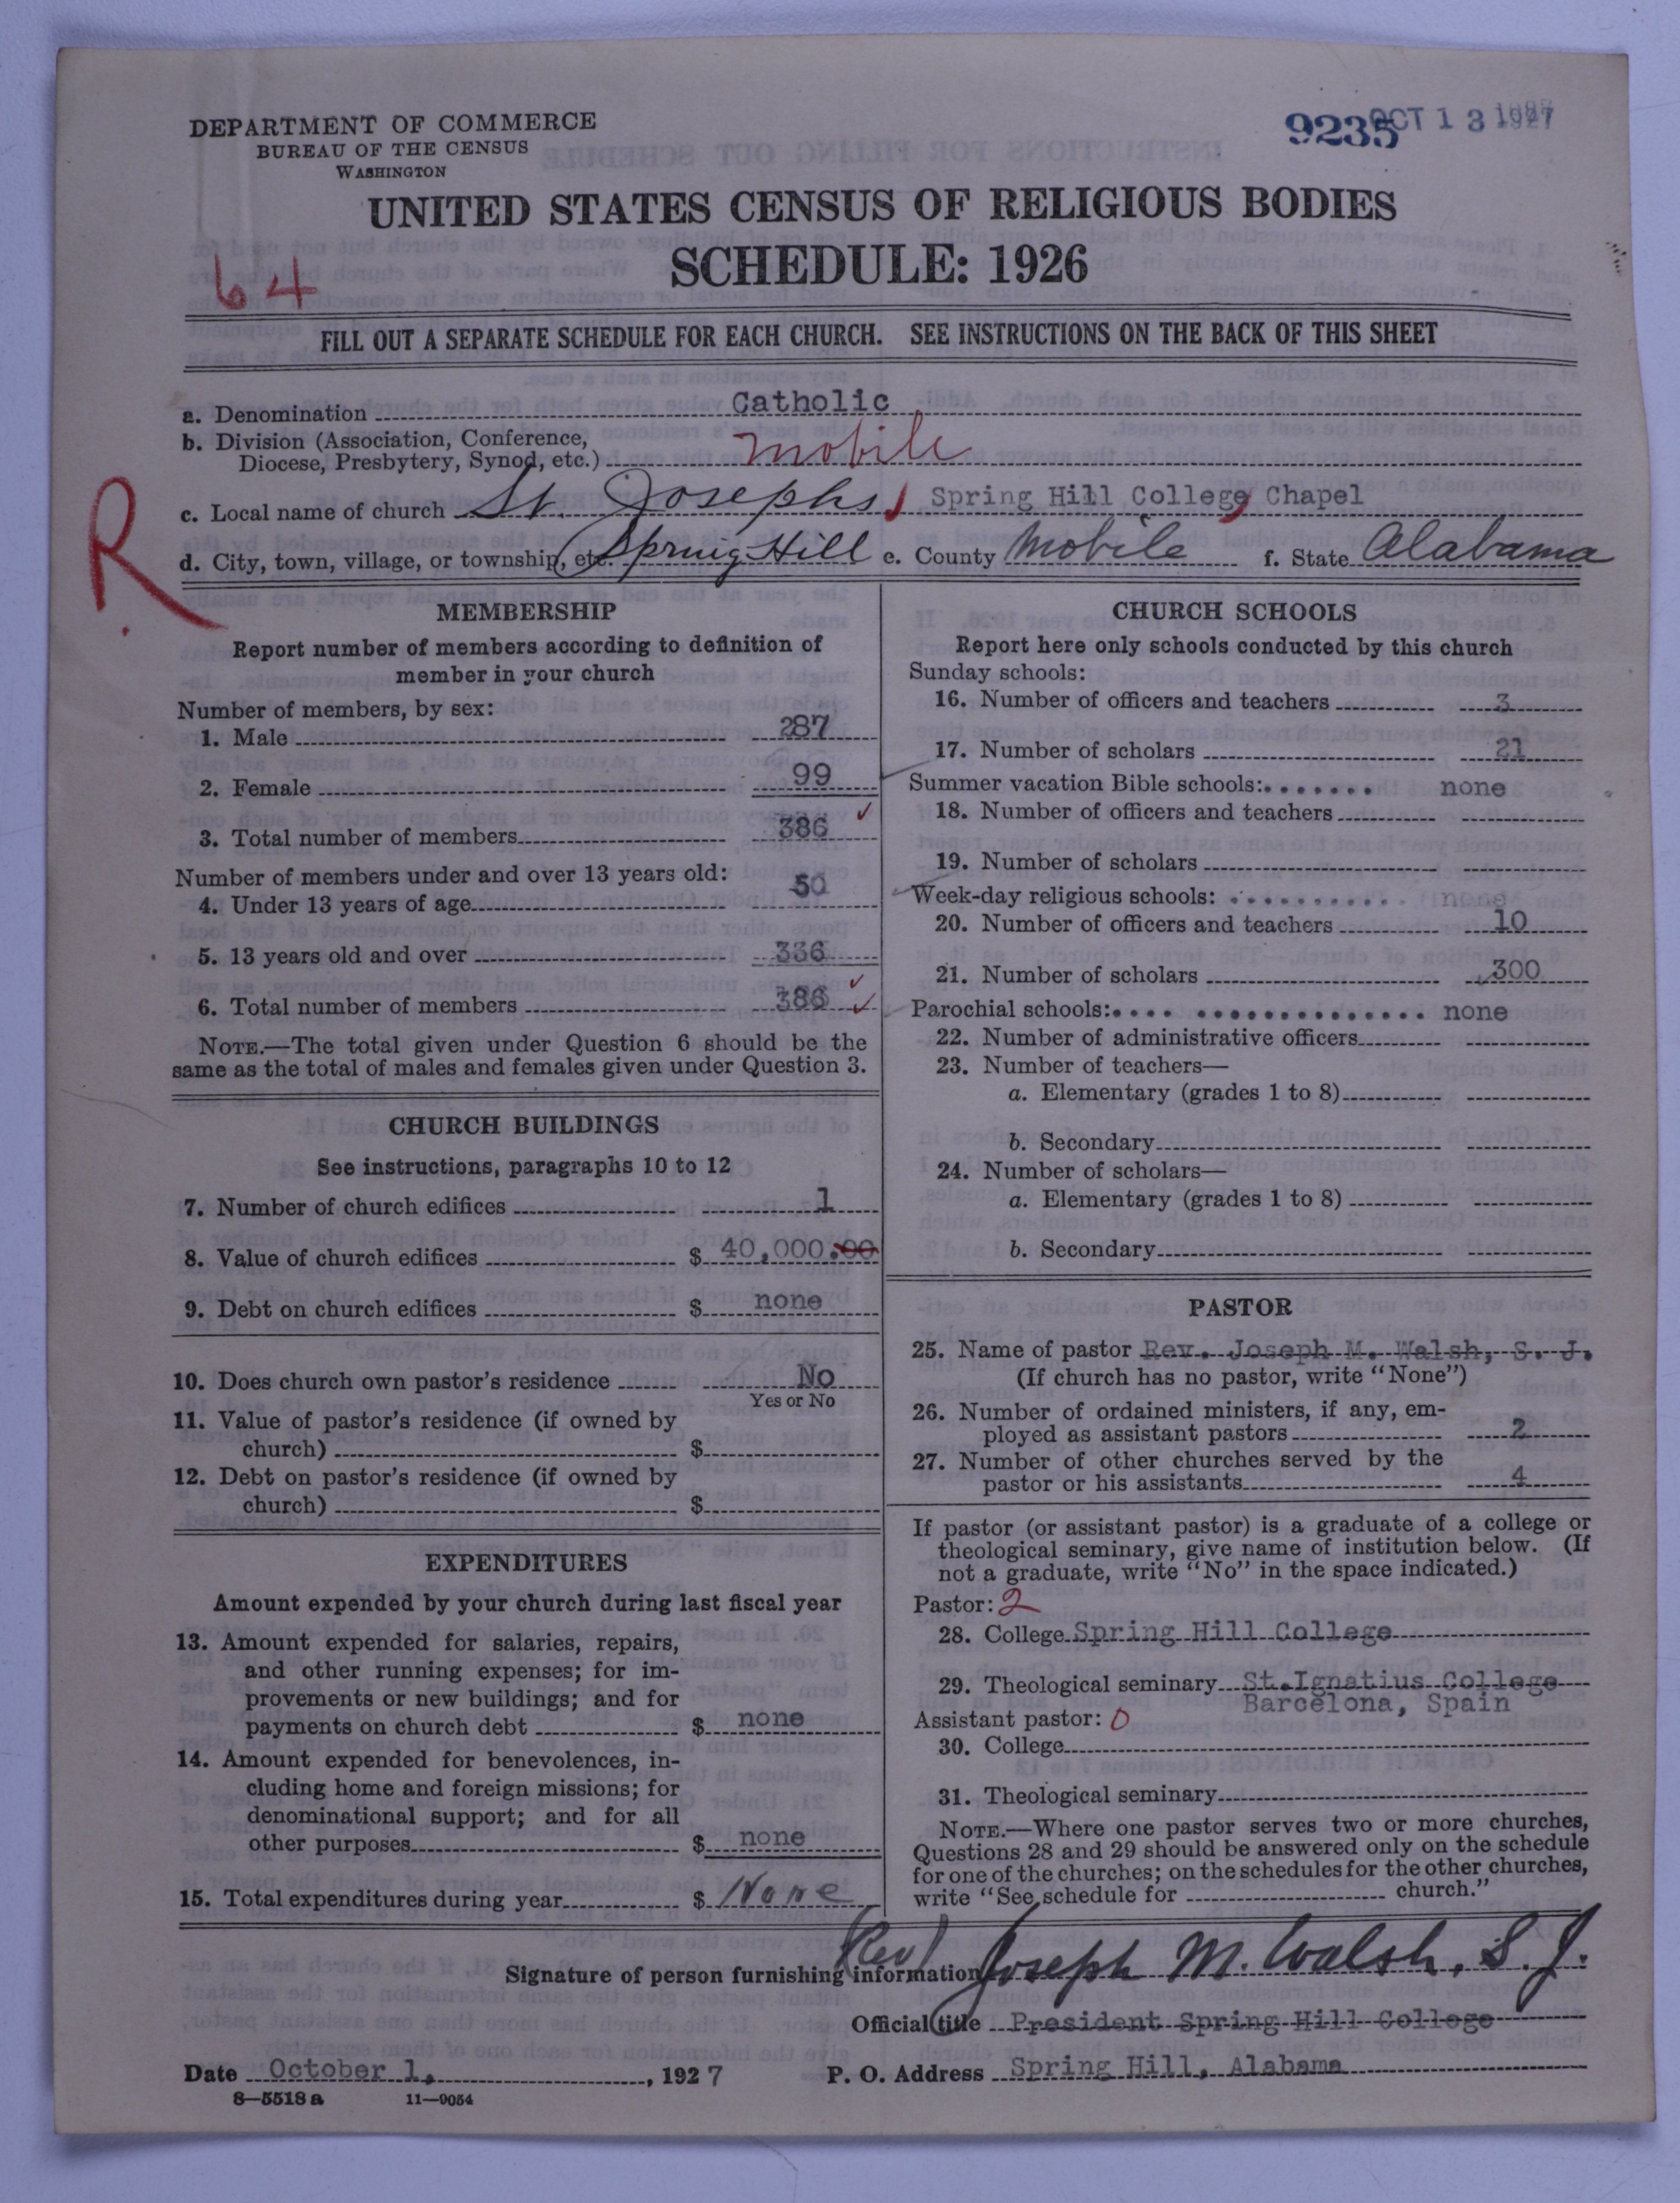 DEPARTMENT OF COMMERCE
BUREAU OF THE CENSUS
WASHINGTON
9235
OCT 13 1927
UNITED STATES CENSUS OF RELIGIOUS BODIES
SCHEDULE: 1926
64
FILL OUT A SEPARATE SCHEDULE FOR EACH CHURCH. SEE INSTRUCTIONS ON THE BACK OF THIS SHEET
a. Denomination Catholic
b. Division (Association, Conference,
Diocese, Presbytery, Synod, etc.) Mobile
R
c. Local name of church St. Josephs, Spring Hill College, Chapel
d. City, town, village, or township, etc. Spring Hill e. County Mobile f. State Alabama
MEMBERSHIP
Report number of members according to definition of
member in your church
Number of members, by sex:
1. Male 287
2. Female 99
3. Total number of members 386
Number of members under and over 13 years old:
4. Under 13 years of age 50
5. 13 years old and over 336
6. Total number of members 386
NOTE.—The total given under Question 6 should be the
same as the total of males and females given under Question 3.
CHURCH BUILDINGS
See instructions, paragraphs 10 to 12
7. Number of church edifices 1
8. Value of church edifices $ 40,000.00
9. Debt on church edifices $ none
10. Does church own pastor's residence No
Yes or No
11. Value of pastor's residence (if owned by
church) $
12. Debt on pastor's residence (if owned by
church) $
EXPENDITURES
Amount expended by your church during last fiscal year
13. Amount expended for salaries, repairs,
and other running expenses; for im-
provements or new buildings; and for
payments on church debt $ none
14. Amount expended for benevolences, in-
cluding home and foreign missions; for
denominational support; and for all
other purposes $ none
15. Total expenditures during year $ None
CHURCH SCHOOLS
Report here only schools conducted by this church
Sunday schools:
16. Number of officers and teachers 3
17. Number of scholars 21
Summer vacation Bible schools: none
18. Number of officers and teachers
19. Number of scholars
Week-day religious schools: none
20. Number of officers and teachers 10
21. Number of scholars 300
Parochial schools: none
22. Number of administrative officers
23. Number of teachers—
a. Elementary (grades 1 to 8)
b. Secondary
24. Number of scholars—
a. Elementary (grades 1 to 8)
b. Secondary
PASTOR
25. Name of pastor Rev. Joseph M. Walsh, S. J.
(If church has no pastor, write "None")
26. Number of ordained ministers, if any, em-
ployed as assistant pastors 2
27. Number of other churches served by the
pastor or his assistants 4
If pastor (or assistant pastor) is a graduate of a college or
theological seminary, give name of institution below. (If
not a graduate, write "No" in the space indicated.)
Pastor: 2
28. College Spring Hill College
29. Theological seminary St.Ignatius College
Barcelona, Spain
Assistant pastor: 0
30. College
31. Theological seminary
NOTE.—Where one pastor serves two or more churches,
Questions 28 and 29 should be answered only on the schedule
for one of the churches; on the schedules for the other churches,
write "See schedule for church."
Signature of person furnishing information (Rev) Joseph M. Walsh, S. J.
Official title President Spring Hill College
Date October 1, 1927 P. O. Address Spring Hill, Alabama
8—5518 a 11—9054